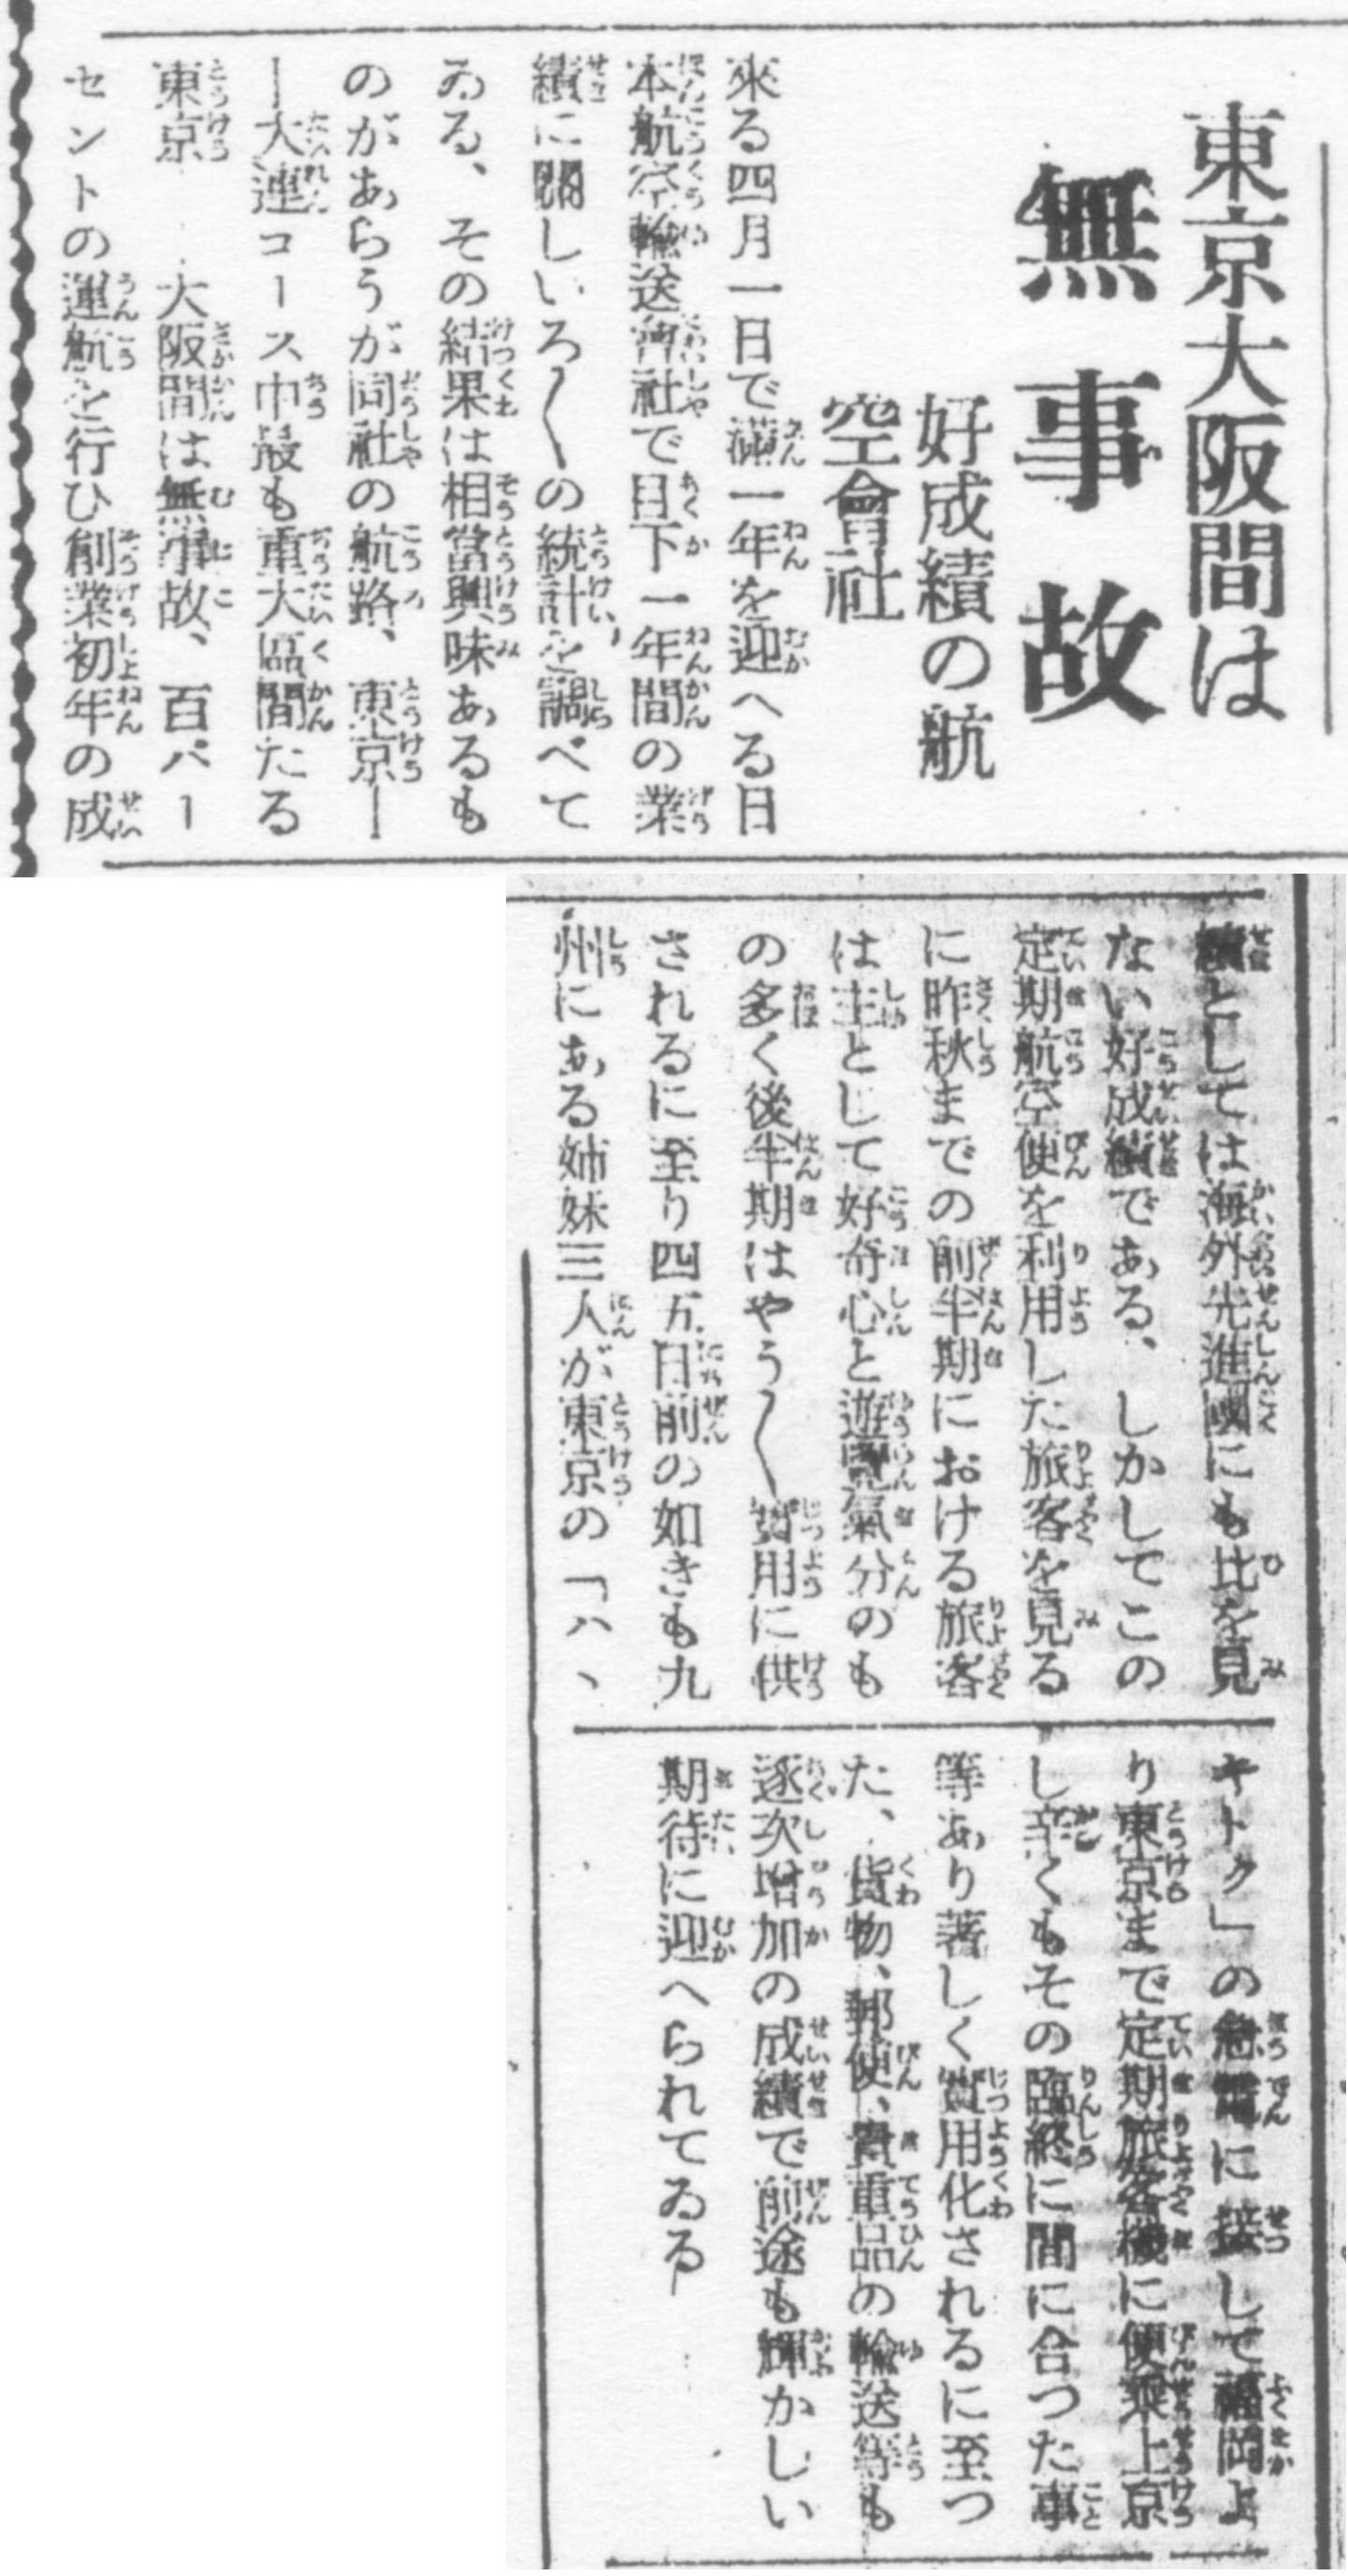 東京大阪間は
無事故
好成績の航
空會社
來る四月一日で滿一年を迎へる日
本航空輸送會社で目下一年間の業
績に關しいろ〱の統計を調べて
ゐる、その結果は相當興味あるも
のがあらうが同社の航路、東京ー
ー大連コース中最も重大區間たる
東京　大阪間は無事故、百パー
セントの運航を行ひ創業初年の成
績としては海外先進國にも比を見
ない好成績である、しかしてこの
定期航空便を利用した旅客を見る
に昨秋までの前半期における旅客
は主として好奇心と遊覽氣分のも
の多く後半期はやう〱實用に供
されるに至り四五日前の如きも九
州にある姉妹三人が東京の「ハヽ
キトク」の急電に接して福岡よ
り東京まで定期旅客機に便乘上京
し辛くもその臨終に間に合つた事
等あり著しく實用化されるに至つ
た、貨物、郵便、貴重品の輸送等も
逐次增加の成績で前途も輝かしい
期待に迎へられてゐる